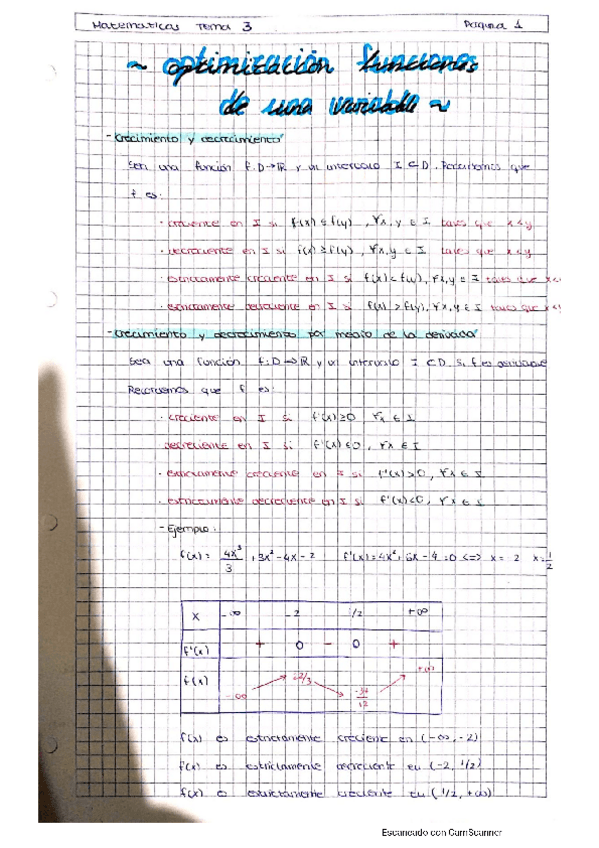 Matematicas Tema 3 Pagina 1
~ optimización funciones
de una variable ~
- Crecimiento y decrecimiento
Sea una función f: D→ℝ y un intervalo I ⊂ D. Recordamos que
f es:
· creciente en I si f(x) ≤ f(y), ∀x, y ∈ I tales que x<y
· decreciente en I si f(x) ≥ f(y), ∀x, y ∈ I tales que x<y
· estrictamente creciente en I si f(x) < f(y), ∀x, y ∈ I tales que x<
· estrictamente decreciente en I si f(x) > f(y), ∀x, y ∈ I tales que x<y
- Crecimiento y decrecimiento por medio de la derivada
Sea una función f: D→ℝ y un intervalo I ⊂ D. Si f es derivable
Recordemos que f es:
· creciente en I si f'(x) ≥ 0 ∀x ∈ I
· decreciente en I si f'(x) ≤ 0, ∀x ∈ I
· estrictamente creciente en I si f'(x) > 0, ∀x ∈ I
· estrictamente decreciente en I si f'(x) < 0, ∀x ∈ I
- Ejemplo:
f(x) = 4x³/3 + 3x² - 4x - 2 f'(x) = 4x² + 6x - 4 = 0 <=> x = -2 x = 1/2
x -∞ -2 1/2 +∞
f'(x) + 0 - 0 +
f(x) -∞ 22/3 +∞
f(x) es estrictamente creciente en (-∞, -2)
f(x) es estrictamente decreciente en (-2, 1/2)
f(x) es estrictamente creciente en (1/2, +∞)
Escaneado con CamScanner